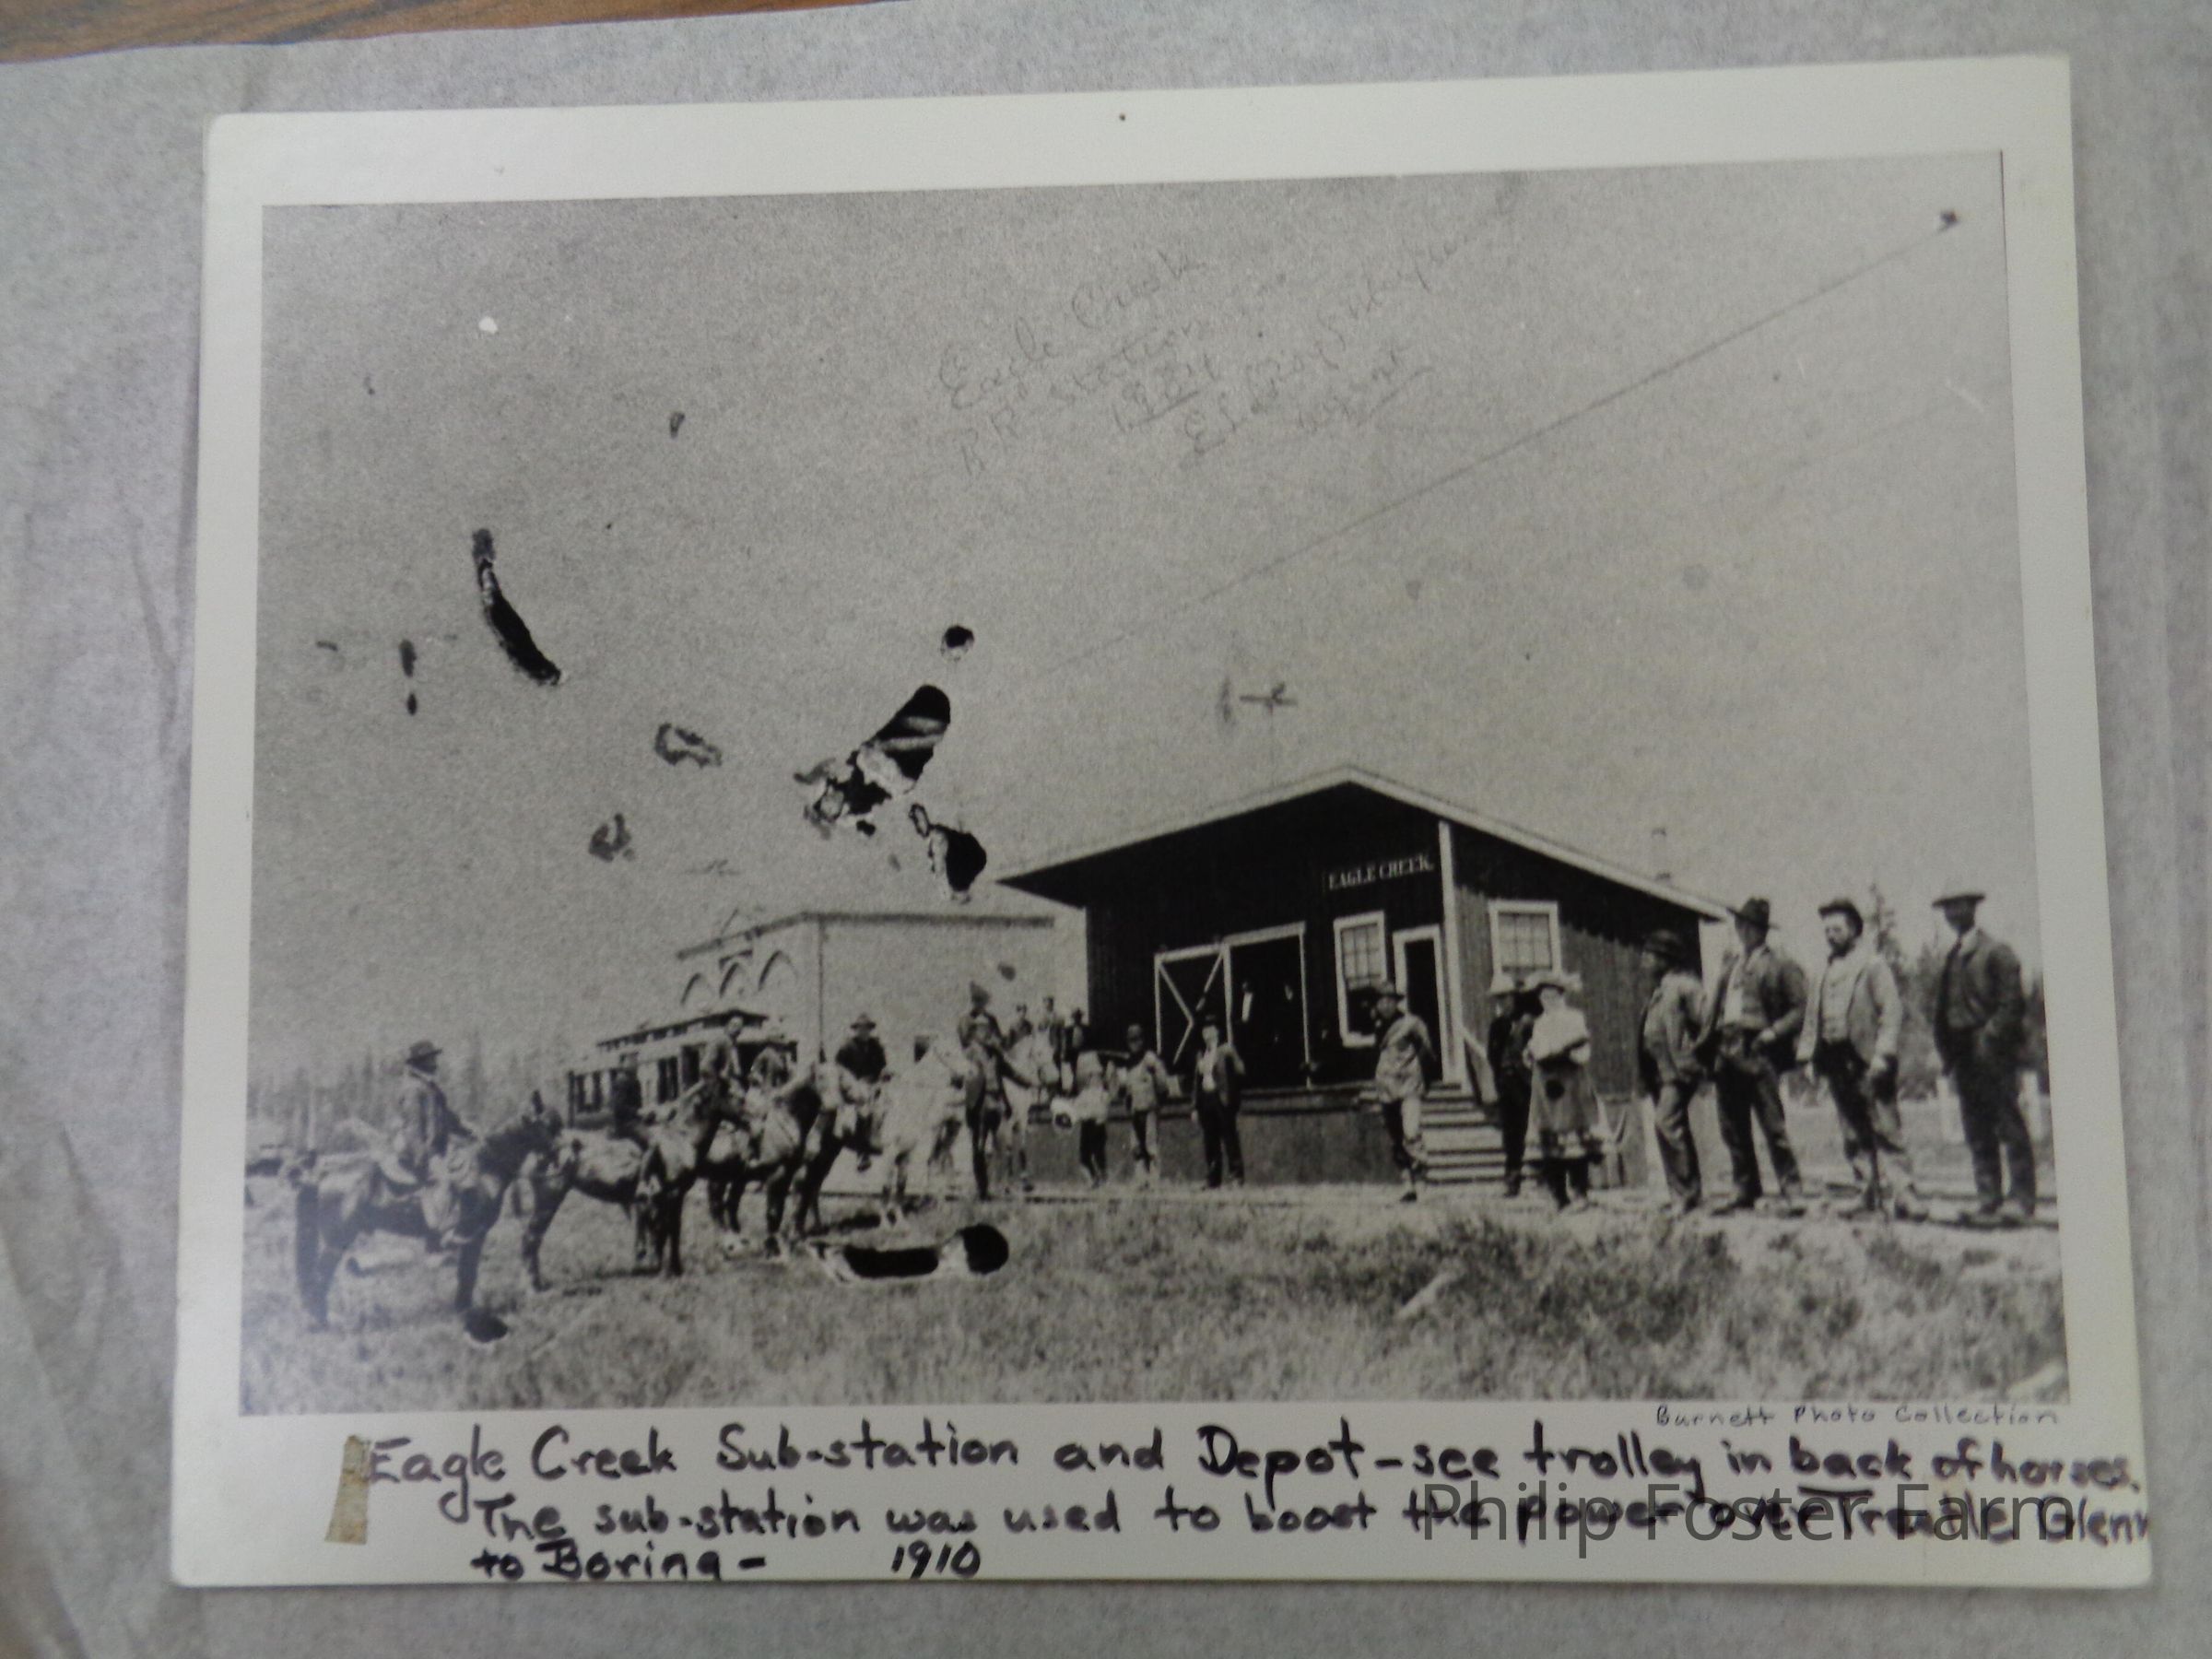 Eagle Creek
RR station
1924
agent
EAGLE CREEK
Burnett Photo Collection
Eagle Creek Sub-station and Depot-see trolley in back of horses.
The sub-station was used to boost the power over Trestle Glenn
to Boring - 1910
Philip Foster Farm